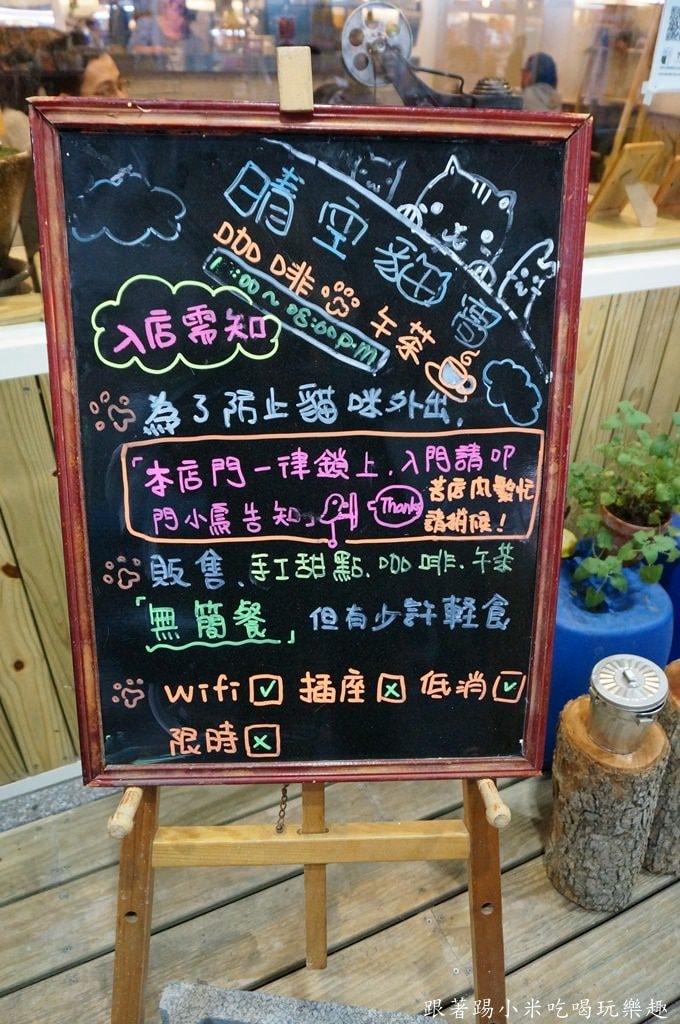 晴空貓窩
咖啡 午茶
:00~08:00p.m
入店需知
為了防止貓咪外出,
「本店門一律鎖上,入門請叩
門小鳥告知」 Thanks 若店內繁忙
請稍候!
販售、手工甜點、咖啡、午茶
「無簡餐」 但有少許輕食
wifi ☑ 插座 ☒ 低消 ☑
限時 ☒
跟著踢小米吃喝玩樂趣